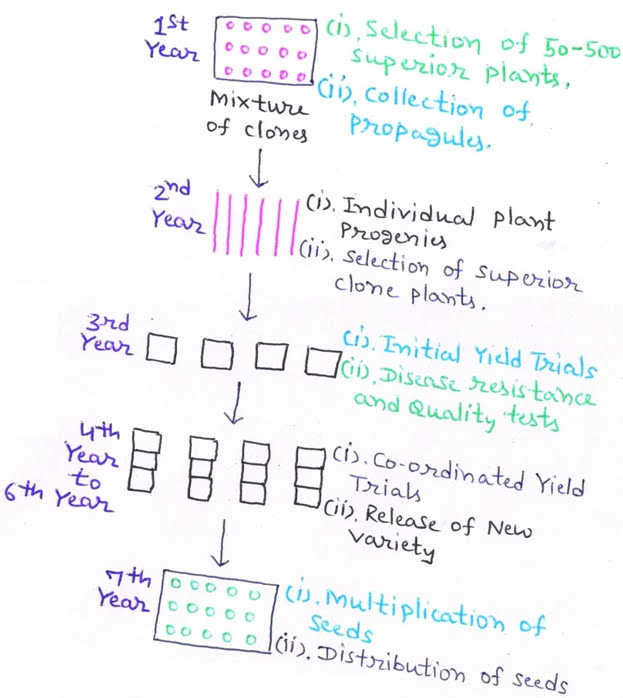 1st
Year
(i). Selection of 50-500
superior plants.
(ii). Collection of
propagules.
Mixture
of clones
2nd
Year
(i). Individual plant
Progenies
(ii). Selection of superior
clone plants.
3rd
Year
(i). Initial Yield Trials
(ii). Disease resistance
and Quality tests
4th
Year
to
6th Year
(i). Co-ordinated Yield
Trials
(ii). Release of New
variety
7th
Year
(i). Multiplication of
seeds
(ii). Distribution of seeds